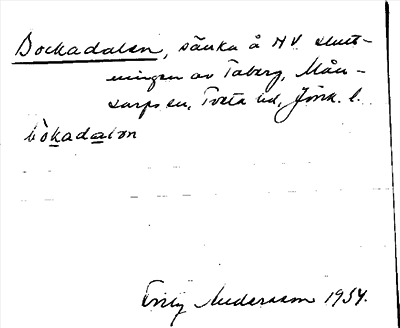 Bockadalen, sänka å NV. slutt-
ningen av Taberg, Mån-
sarps sn, Tveta hd, Jönk. l.
bokadalən
Andersson 1934.